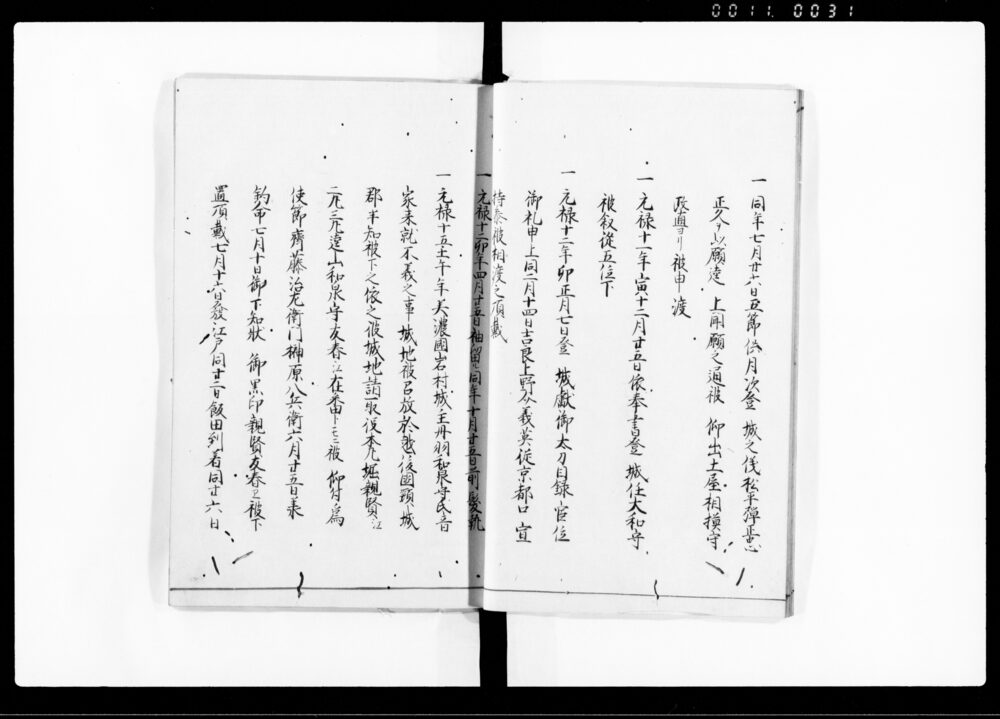 0011 0031
一 同年七月廿六日五節供月次登 城之伐松平弾正忠
正久ヲ以願達 上聞願之通被 仰出土屋相模守
政直ヨリ被申渡
一 元禄十一年寅十二月廿五日依奉書登 城任大和守
被叙従五位下
一 元禄十二年卯正月七日登 城献御太刀目録官位
御礼申上同二月十四日吉良上野介義英従京都口宣
持参被相渡之頂戴
一 元禄十二卯年四月廿五日袖留同年十月廿五日前髪執
一 元禄十五壬午年美濃國岩村城主丹羽和泉守氏音
家来就不義之事 城地被召放於越後國頸城
郡半知被下之依彼城地請取役本丸堀親賢江
二丸三丸遠山和泉守友春江在番トモニ被 仰付為
使節齊藤治左衛門榊原八兵衛六月廿五日奉
鈞命七月十日御下知状 御黒印親賢友春ニ被下
置頂戴七月十六日發江戸同廿二日飯田到着同廿六日